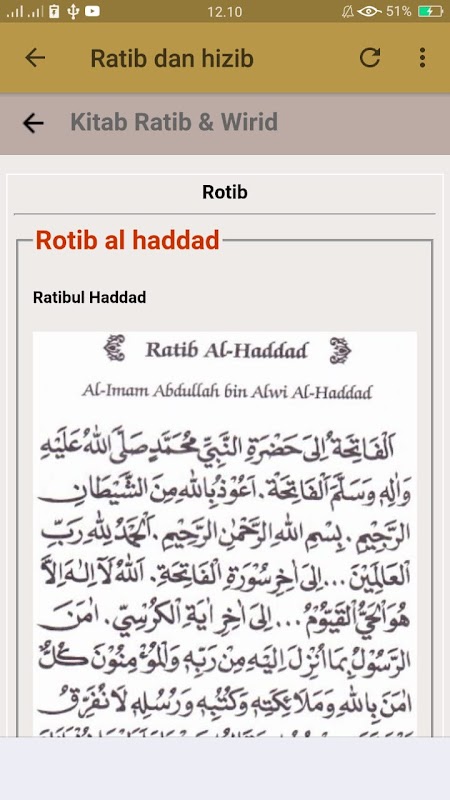 12.10
51%
Ratib dan hizib
Kitab Ratib & Wirid
Rotib
Rotib al haddad
Ratibul Haddad
Ratib Al-Haddad
Al-Imam Abdullah bin Alwi Al-Haddad
اَلْفَاتِحَةُ اِلَى حَضْرَةِ النَّبِيِّ مُحَمَّدٍ صَلَّى اللهُ عَلَيْهِ
وَاٰلِهِ وَسَلَّمَ اَلْفَاتِحَةْ. اَعُوْذُ بِاللهِ مِنَ الشَّيْطَانِ
الرَّجِيْمِ. بِسْمِ اللهِ الرَّحْمٰنِ الرَّحِيْمِ. اَلْحَمْدُ لِلهِ رَبِّ
الْعَالَمِيْنَ... اِلَى اٰخِرِ سُوْرَةِ الْفَاتِحَةِ. اَللهُ لَآ اِلٰهَ اِلاَّ
هُوَ الْحَيُّ الْقَيُّوْمُ... اِلَى اٰخِرِ اٰيَةِ الْكُرْسِيِّ. اٰمَنَ
الرَّسُوْلُ بِمَا اُنْزِلَ اِلَيْهِ مِنْ رَبِّهِ وَالْمُؤْمِنُوْنَ كُلٌّ
اٰمَنَ بِاللهِ وَمَلَائِكَتِهِ وَكُتُبِهِ وَرُسُلِهِ لَا نُفَرِّقُ